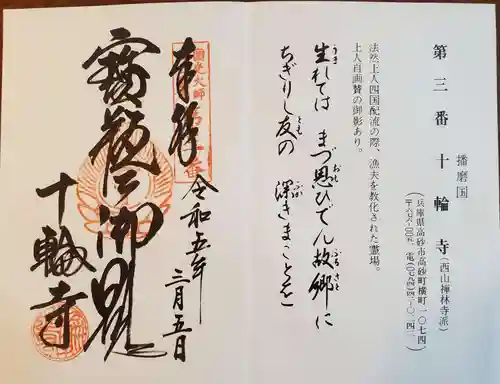 第三番 十輪寺(西山禅林寺派)
播磨国
(兵庫県高砂市高砂町横町一〇七四
法然上人四国配流の際、漁夫を教化された霊場。
上人自画賛の御影あり。
生れては まづ思ひでん 故郷に
ちぎりし友の 深きまことを
圓光大師
第三番
奉拝
令和五年
三月五日
十輪寺